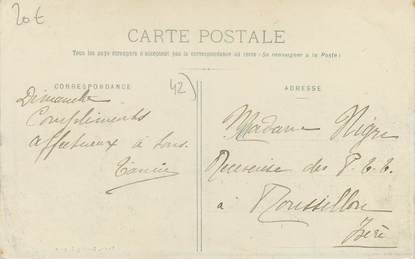 20€
CARTE POSTALE
Tous les pays étrangers n'acceptent pas la correspondance au verso (Se renseigner à la Poste)
CORRESPONDANCE
42)
ADRESSE
Dimanche
Compliments
affectueux à tous
Madame Nigre
Receveuse des P. T. T.
à Roussillon
Isère